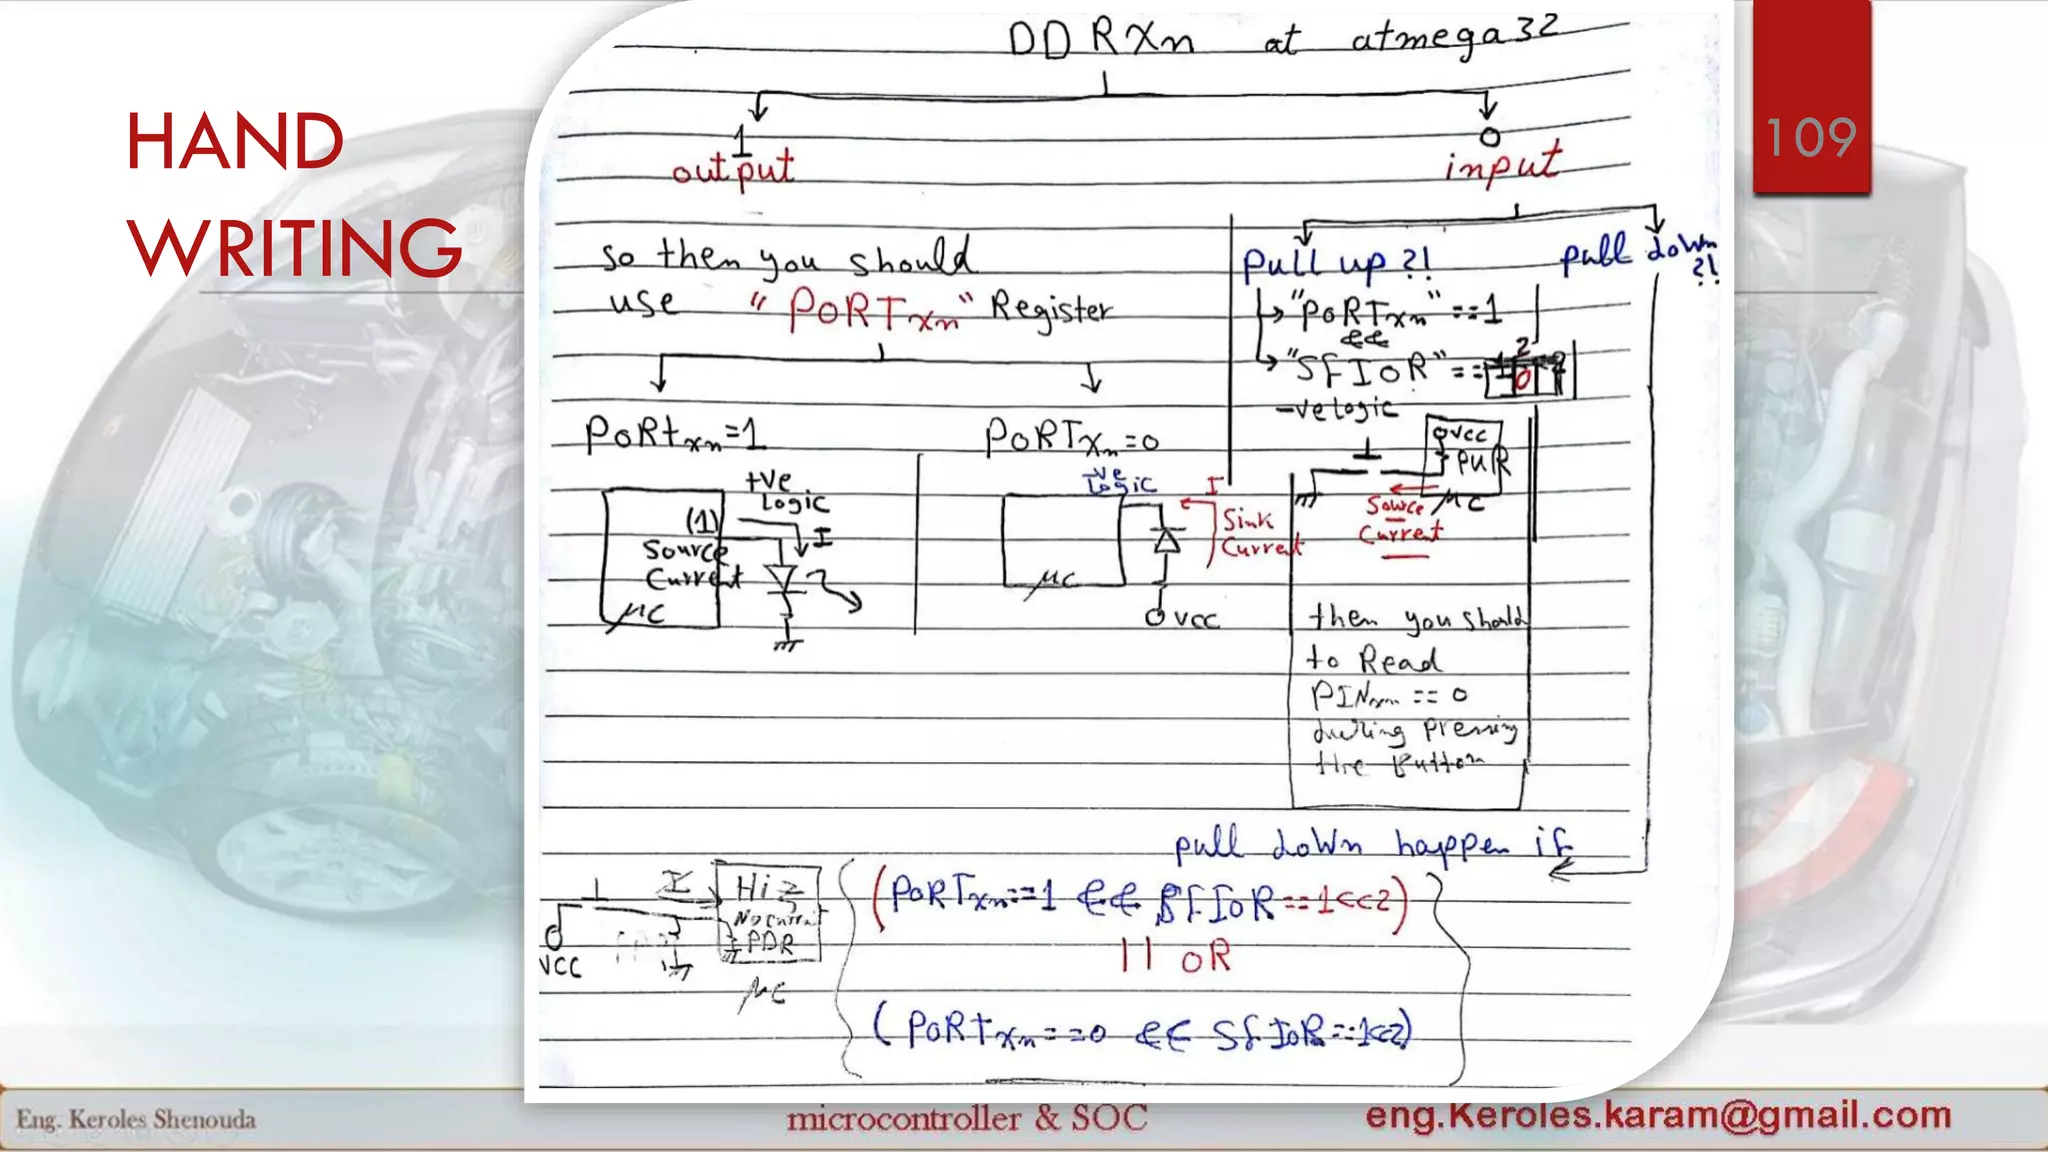 HAND
WRITING
109
DDRXn at atmega32
1
output
0
input
so then you should
use "PORTxn" Register
PORtxn=1
PORTxn=0
+ve
Logic
(1)
I
Source
Current
μC
-ve
Logic
I
Sink
Current
μC
VCC
pull up ?!
"PORTxn" ==1
&&
"SFIOR" ==
2
0
-ve logic
VCC
PUR
μC
Source
Current
then you should
to Read
PINxn == 0
during pressing
the Button
pull down
?!
pull down happen if
(PORTxn==1 && SFIOR==1<<2)
|| OR
(PORtxn==0 && SFIOR==1<<2)
I
Hi z
No Current
PDR
VCC
μC
Eng. Keroles Shenouda
microcontroller & SOC
eng.Keroles.karam@gmail.com